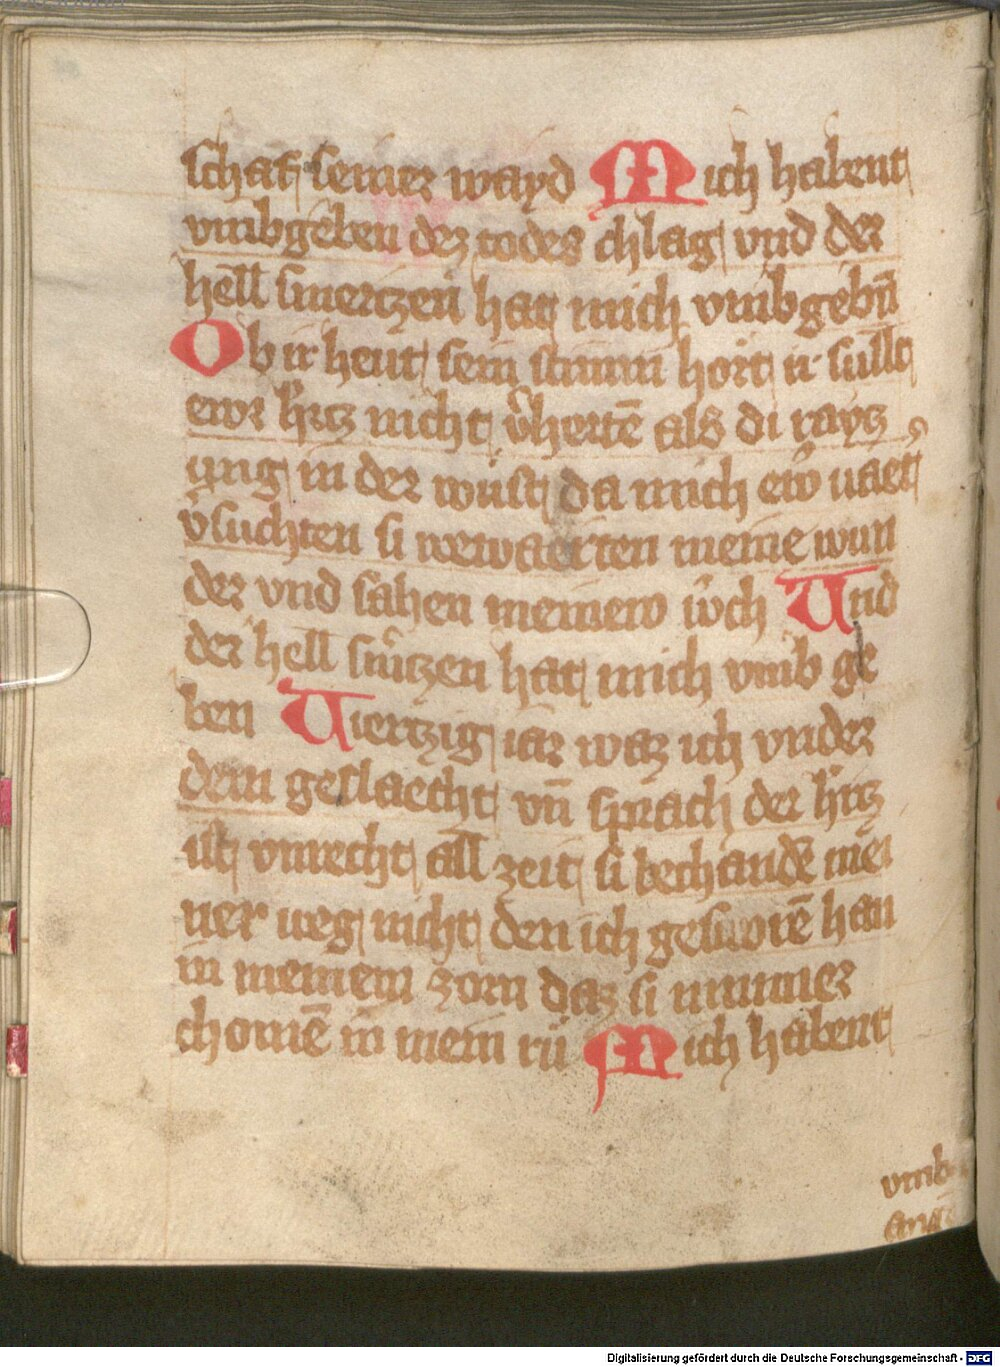 schaf seiner wayd Mich habent
vmbgeben dez todes chlag vnd der
hell smertzen hat mich vmbgebn̄
Ob ir heut sein stimm hort ir sullt
ewr h̓tz nicht v̓hertē als di raytz
ung in der wüst da mich ew̓ vaet̓
v̓suchten si wewaerten meine wun
der vnd sahen meinew w̓ch Und
der hell sm̓tzen hat mich vmb ge
ben Viertzig iar waz ich vnder
dem geslaecht vn̄ sprach der h̓tz
ist vnrecht all zeit si bechandē mei
ner weg nicht den ich gesworē han
in meinem zorn daz si nimmer
chomē in mein rü Mich habent
vmb
Digitalisierung gefördert durch die Deutsche Forschungsgemeinschaft - DFG